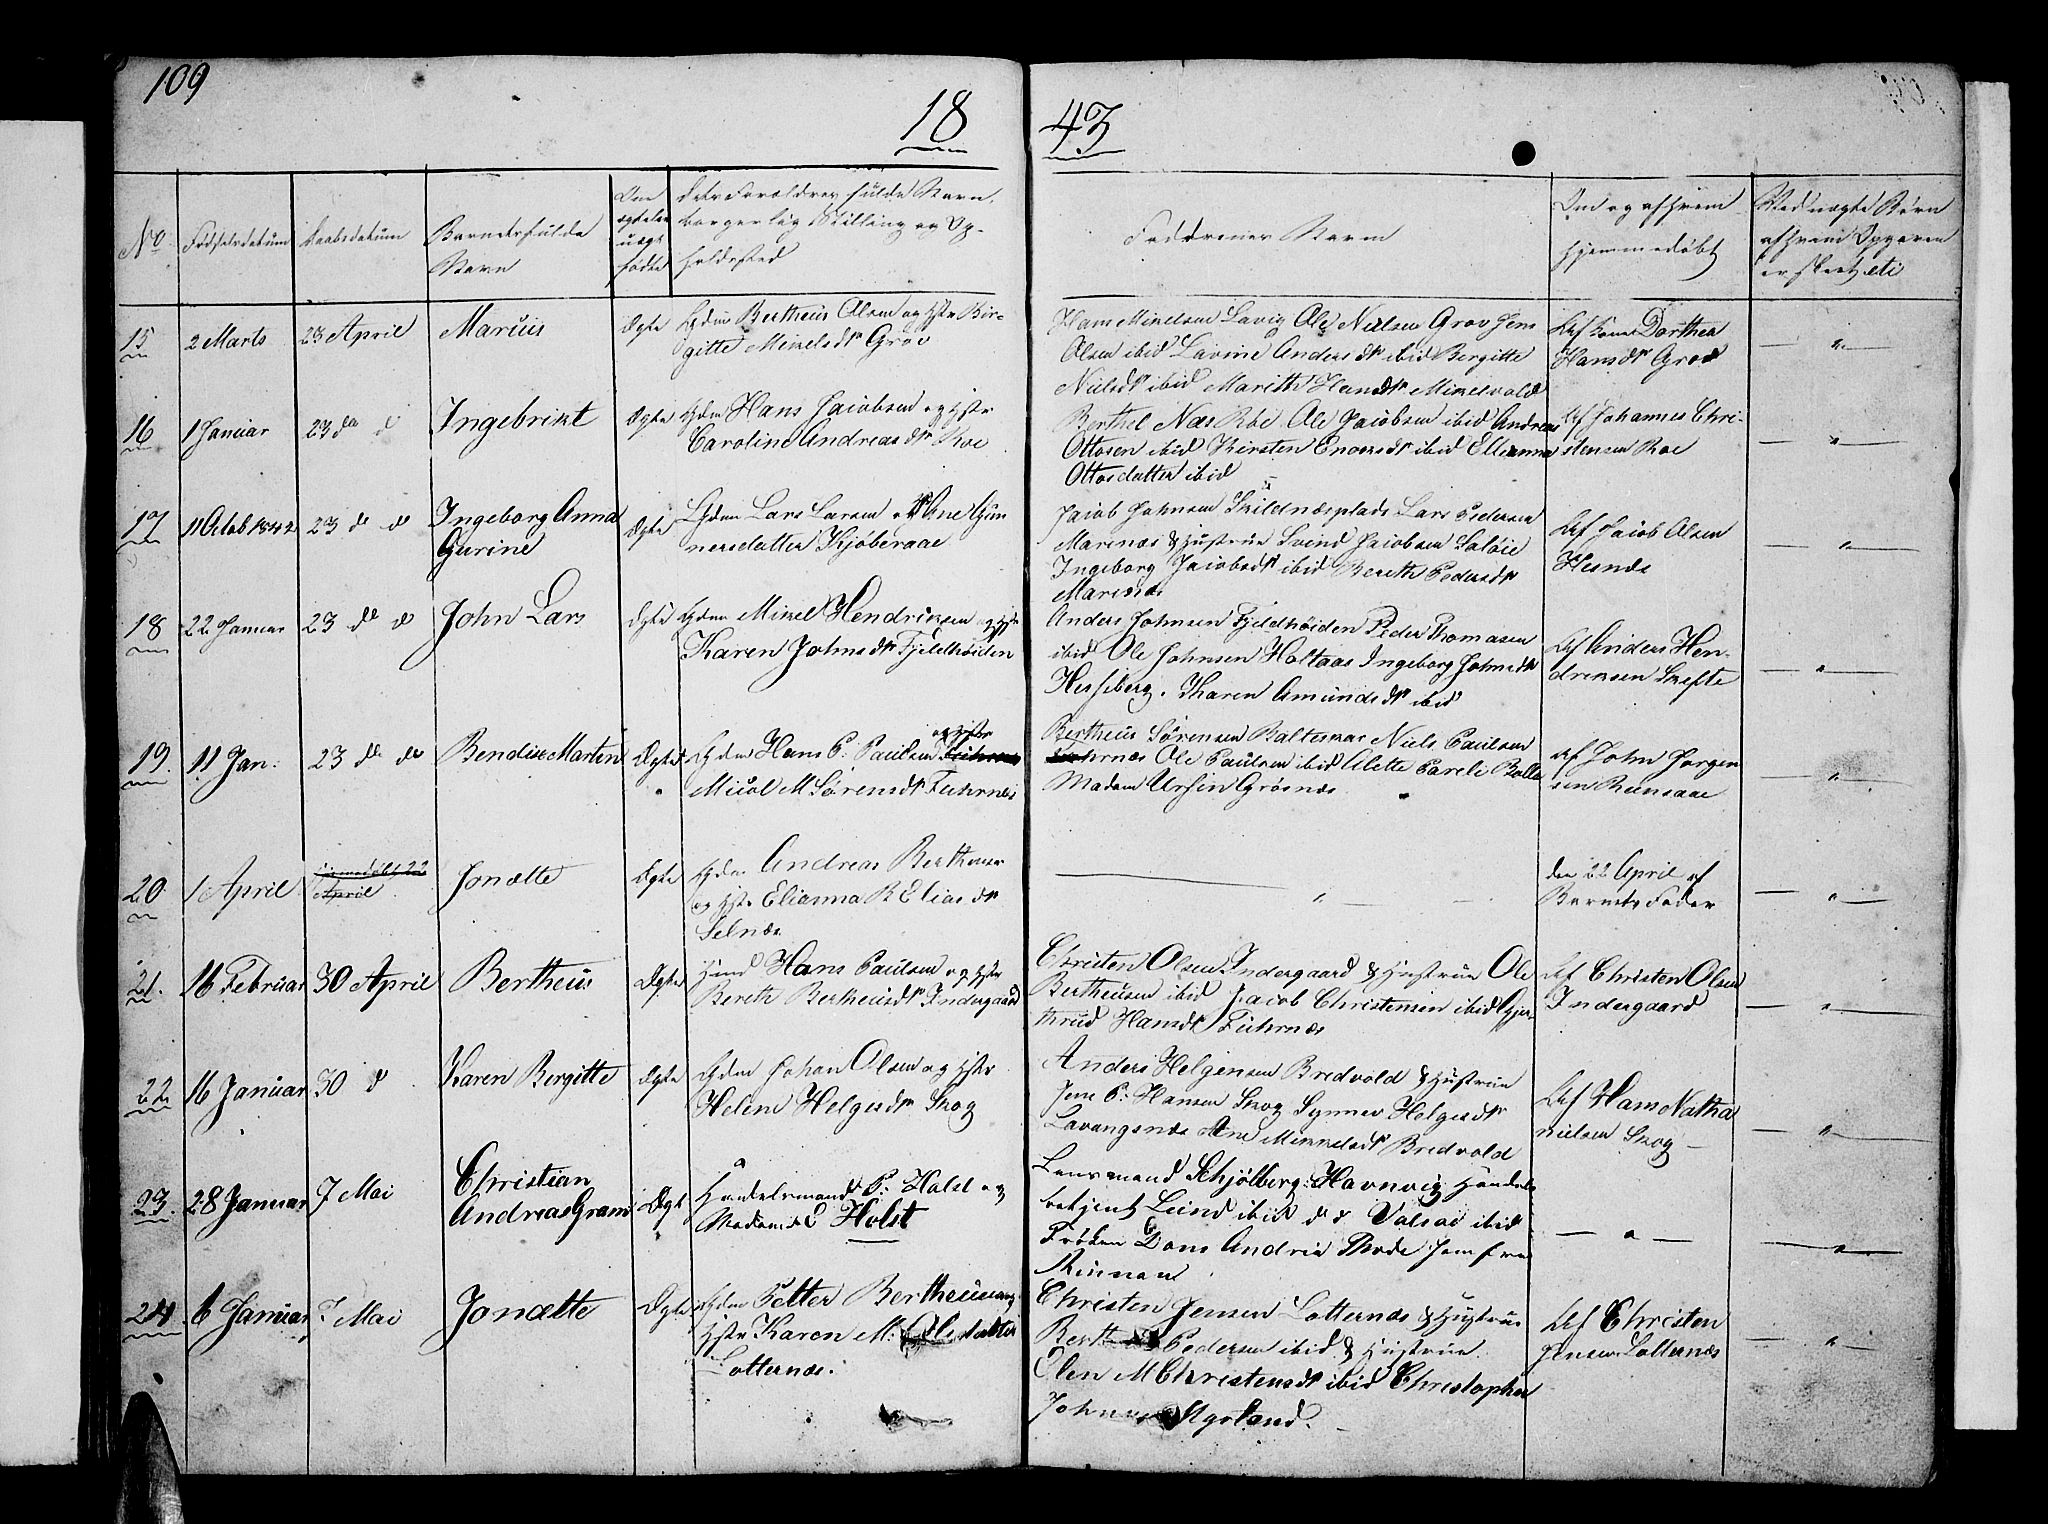 109
18 43
No
Fødselsdatum
Daabsdatum
Barnets fulde
Navn
Om
ægte eller
uægte
fødte
Dets Forældres fulde Navn,
borgerlig Stilling og Op-
holdssted
Faddernes Navne
Om og af hvem
hjemmedøbt
Ved uægte Børn
af hvem Opgaven
er skeet etc
15 2 Marts 23 April Marius Ægte Gdm Bertheus Olsen og Hstr Bir-
gitte Mikelsdtr Grov
Hans Mikelsen Lavig Ole Nielsen Grov Jens
Olsen ibid Lavine Andersdtr ibid Bergitte
Nielsdtr ibid Marith Hansdtr Mikelvold
Af Kone Dorthea
Hansdtr Grov
— " —
16 1 Januar 23 de d Ingebrikt Ægte Gdm Hans Jacobsen og Hstr
Caroline Andreasdtr Roe
Berthel Næs Roe Ole Jacobsen ibid Andreas
Ottosen ibid Kirsten Enoksdtr ibid Ellenna
Ottosdatter ibid
Af Johannes Chri-
stensen Roe
— " —
17 11 Octob 1842 23 de d Ingeborg Anna
Gurine
Ægte Gdm Lars Larsen og Ane Gun
nersdatter Kjøberaae
Jacob Johnsen Skildnæsplads Lars Pedersen
Marenæs & Hustrue Svend Jacobsen Saløie
Ingeborg Jacobsdtr ibid Bereth Pedersdtr
Marenæs
Af Jacob Olsen
Hesnæs
— " —
18 22 Januar 23 de d John Lars Ægte Gdm Mikel Hendriksen og Hstr
Karen Johnsdtr Fjeldhøiden
Anders Johnsen Fjeldhøiden Peder Thomasen
ibid Ole Johnsen Holtaas Ingeborg Johnsdtr
Hessberg. Karen Amundsdtr ibid
Af Anders Hen-
driksen Skefte
— " —
19. 11 Jan. 23 de d Bendix Martin Ægte Gdm Hans P. Paulsen og Hstr
Micol M Sørensdtr Fuhrnæs
Bertheus Sørensen Balteskar Niels Paulsen
Fuhrnæs Ole Paulsen ibid Alette Pareli Bolle
Madam Ursin Grøsnæs
Af John Jørgen
sen Rensaae
— " —
20 1 April April Jonætte Ægte Gdm Andreas Berthesen
og Hstr Elianna B Eliasdtr
Selnæs
— " —
den 22 April af
Barnets Fader
— " —
21. 16 Februar 30 April Bertheus Ægte Hans Paulsen og Hstr
Bereth Bertheusdtr Indergaard
Christen Olsen Indergaard & Hustrue Ole
Bertheusen ibid Jacob Christensen ibid Gjer-
thrud Hansdtr Fuhrnæs
Af Christen Olsen
Indergaard
— " —
22 16 Januar 30 d Karen Bergitte Ægte Gdm Johan Olsen og Hstr
Helene Helgesdtr Skog
Anders Helgensen Bredvold & Hustrue
Jens P. Hansen Skog Synnev Helgesdtr
Lavangsnæs Ane Mikkelsdtr Bredvold
Af Hans Natha
nielsen Skog
— " —
23. 28 Januar 7 Mai Christian
Andreas Gram
Ægte Handelsmand P. Holst og
Madame Holst
Lensmand Schjølberg Havnvig Handels
betjent Lund ibid d d Valsøe ibid
Frøken Dons Andria Thode Jomfrue
— " —
— " —
24 6 Januar 7 Mai Jonætte Ægte Gdm Petter Bertheusen og
Hstr Karen M. Olsdatter
Lotternæs.
Christen Jensen Lotternæs & Hustrue
Pedersen ibid & Hustrue
Olen M Christensdtr ibid Christopher
Af Christen
Jensen Lotternæs
— " —